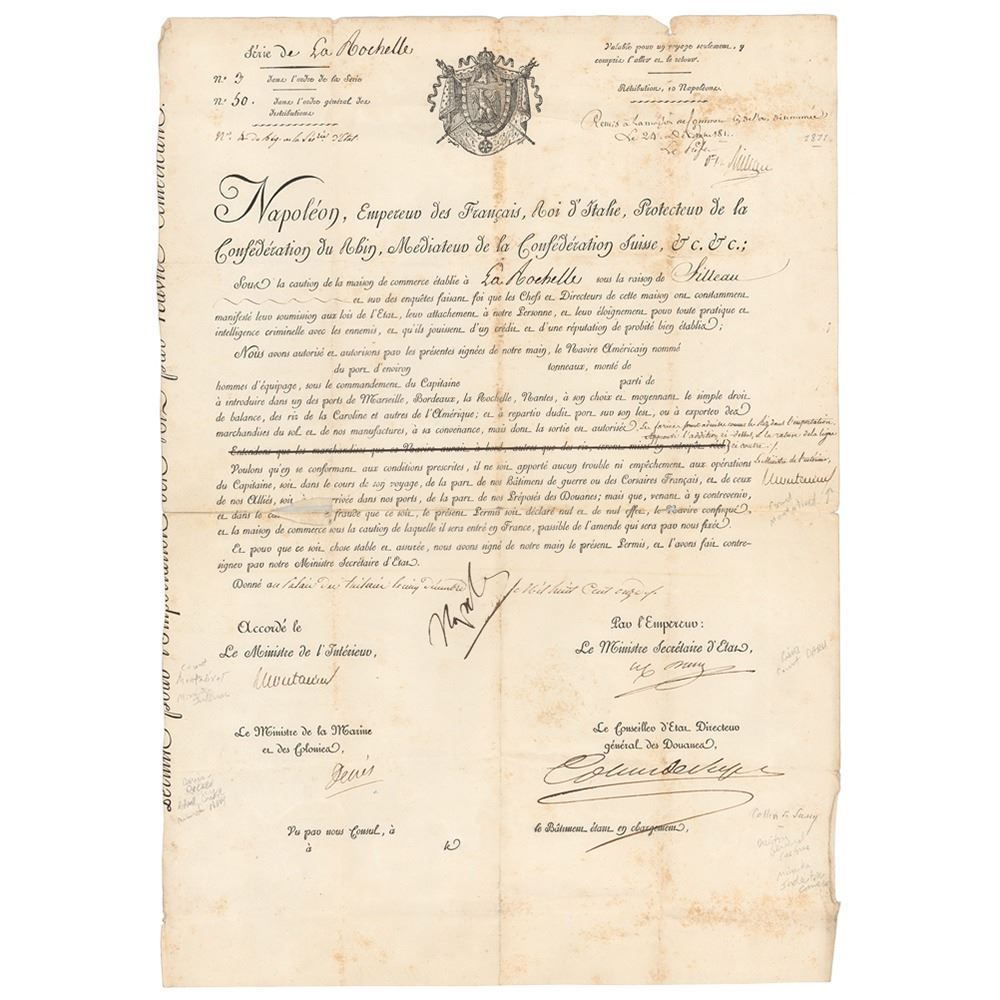 Série de La Rochelle
N.º 3 dans l'ordre de la Série
N.º 50. dans l'ordre général des distributions
Valable pour un voyage seulement, y
compris l'aller et le retour.
Rétribution, 10 Napoléons.
Remis à la maison
Le 24
Le
1811
Napoléon, Empereur des Français, Roi d'Italie, Protecteur de la
Confédération du Rhin, Médiateur de la Confédération Suisse, &c. &c.;
Sous la caution de la maison de commerce établie à La Rochelle sous la raison de Filleau
et sur des enquêtes faisant foi que les Chefs et Directeurs de cette maison ont constamment
manifesté leur soumission aux lois de l'Etat, leur attachement à notre Personne, et leur éloignement pour toute pratique et
intelligence criminelle avec les ennemis, et qu'ils jouissent d'un crédit et d'une réputation de probité bien établis;
Nous avons autorisé et autorisons par les présentes signées de notre main, le Navire Américain nommé
du port d'environ tonneaux, monté de
hommes d'équipage, sous le commandement du Capitaine parti de
à introduire dans un des ports de Marseille, Bordeaux, la Rochelle, Nantes, à son choix et moyennant le simple droit
de balance, des ris de la Caroline et autres de l'Amérique; et à repartir dudit port sur son lest, ou à exporter des
marchandises du sol et de nos manufactures, à sa convenance, mais dont la sortie en autorisée.
Entendons que les marchandises que ce Navire aurait à bord autres que des ris, seront mises en entrepôt réel;
La farine pourra être admise comme le Riz dans l'importation
Approuvé l'addition ci-dessus, & la rature de la ligne
ci contre /.
Le Ministre de l'intérieur,
Montalivet
Voulons qu'en se conformant aux conditions prescrites, il ne soit apporté aucun trouble ni empêchement aux opérations
du Capitaine, soit dans le cours de son voyage, de la part de nos Bâtimens de guerre ou des Corsaires Français, et de ceux
de nos Alliés, soit à rrivée dans nos ports, de la part de nos Préposés des Douanes; mais que, venant à y contrevenir,
et dans le ca de fraude que ce soit, le présent Permis soit déclaré nul et de nul effet, le Navire confisqué,
et la maison de commerce sous la caution de laquelle il sera entré en France, passible de l'amende qui sera par nous fixée.
Et pour que ce soit chose stable et assurée, nous avons signé de notre main le présent Permis, et l'avons fait contre-
signer par notre Ministre Secrétaire d'Etat.
Donné au Palais des Tuileries le cinq décembre Mil huit Cent onze /.
Nap
Accordé le
Le Ministre de l'Intérieur,
Montalivet
Par l'Empereur:
Le Ministre Secrétaire d'Etat,
Count
Montalivet
Count DARU
Le Ministre de la Marine
et des Colonies,
Decrès
Le Conseiller d'Etat Directeur
général des Douanes,
Collin de Sussy
Vu par nous Consul, à
à le
le Bâtiment étant en chargement,
Collin de Sussy